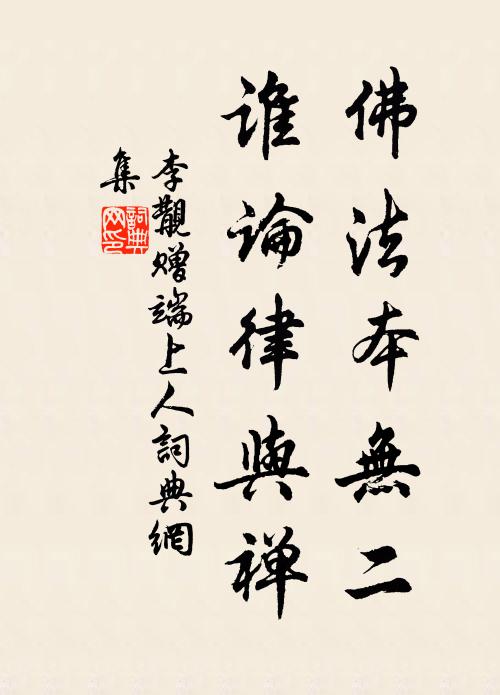 佛法本無二
誰論律與禪
李覯贈端上人詞典網
集
詞典
网印